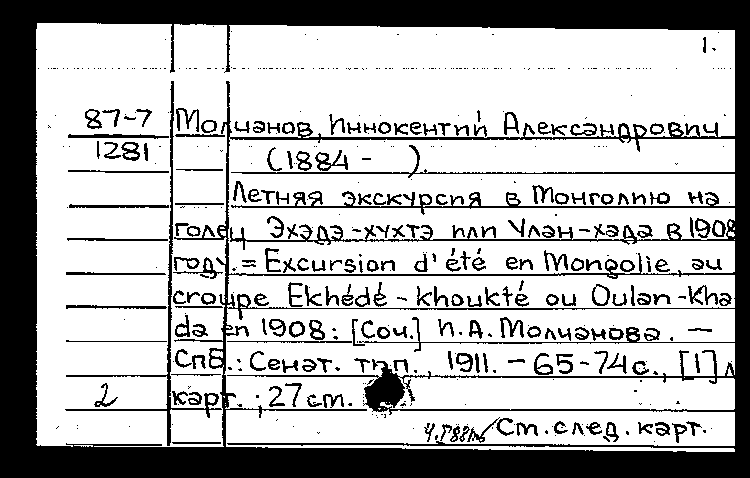 1.
87-7 Молчанов, Иннокентий Александрович
1281 (1884 - ).
Летняя экскурсия в Монголию на
голец Эхэдэ-хухтэ или Улан-хада в 1908
году. = Excursion d'été en Mongolie, au
croupe Ekhédé-khoukté ou Oulan-Kha
da en 1908: [Соч.] И.А. Молчанова. —
Спб.: Сенат. тип., 1911. - 65-74 с., [1] л
2 карт.; 27 cm.
См. след. карт.